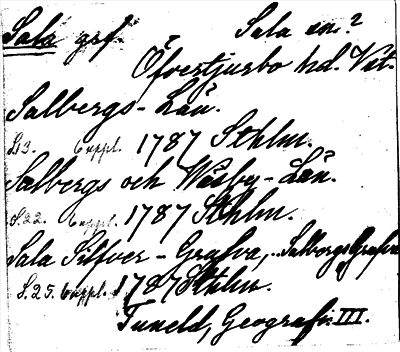 Sala grf. Sala sn.?
Öfvertjurbo hd. Vst.
Salbergs-Län.
S.13. 6 uppl. 1787 Sthlm.
Salbergs och Wäsby-Län.
S.22. 6 uppl. 1787 Sthlm.
Sala Silfver-Grufva, Salbergs Grufva
S.25. 6 uppl. 1787 Sthlm.
Tuneld, Geografi. III.